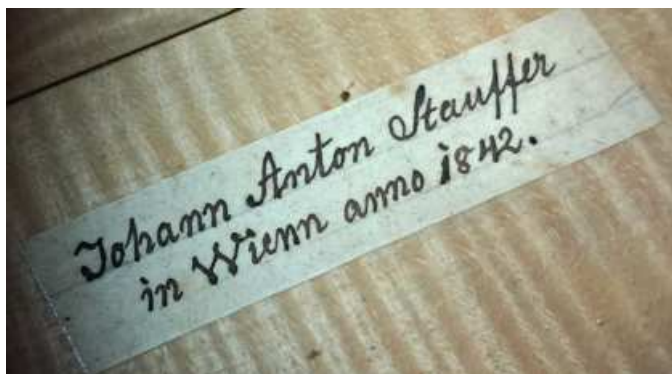 Johann Anton Stauffer
in Wienn anno 1842.